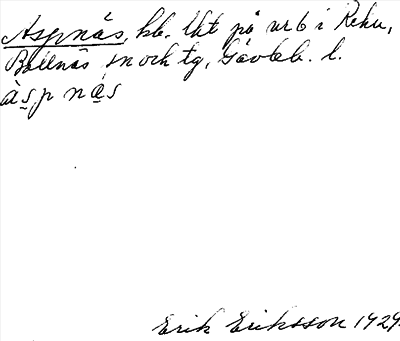 Aspnäs, hb. lht på nr 6 i Reku,
Bollnäs sn och tg, Gävleb. l.
àspnäs
Erik Eriksson 1929.